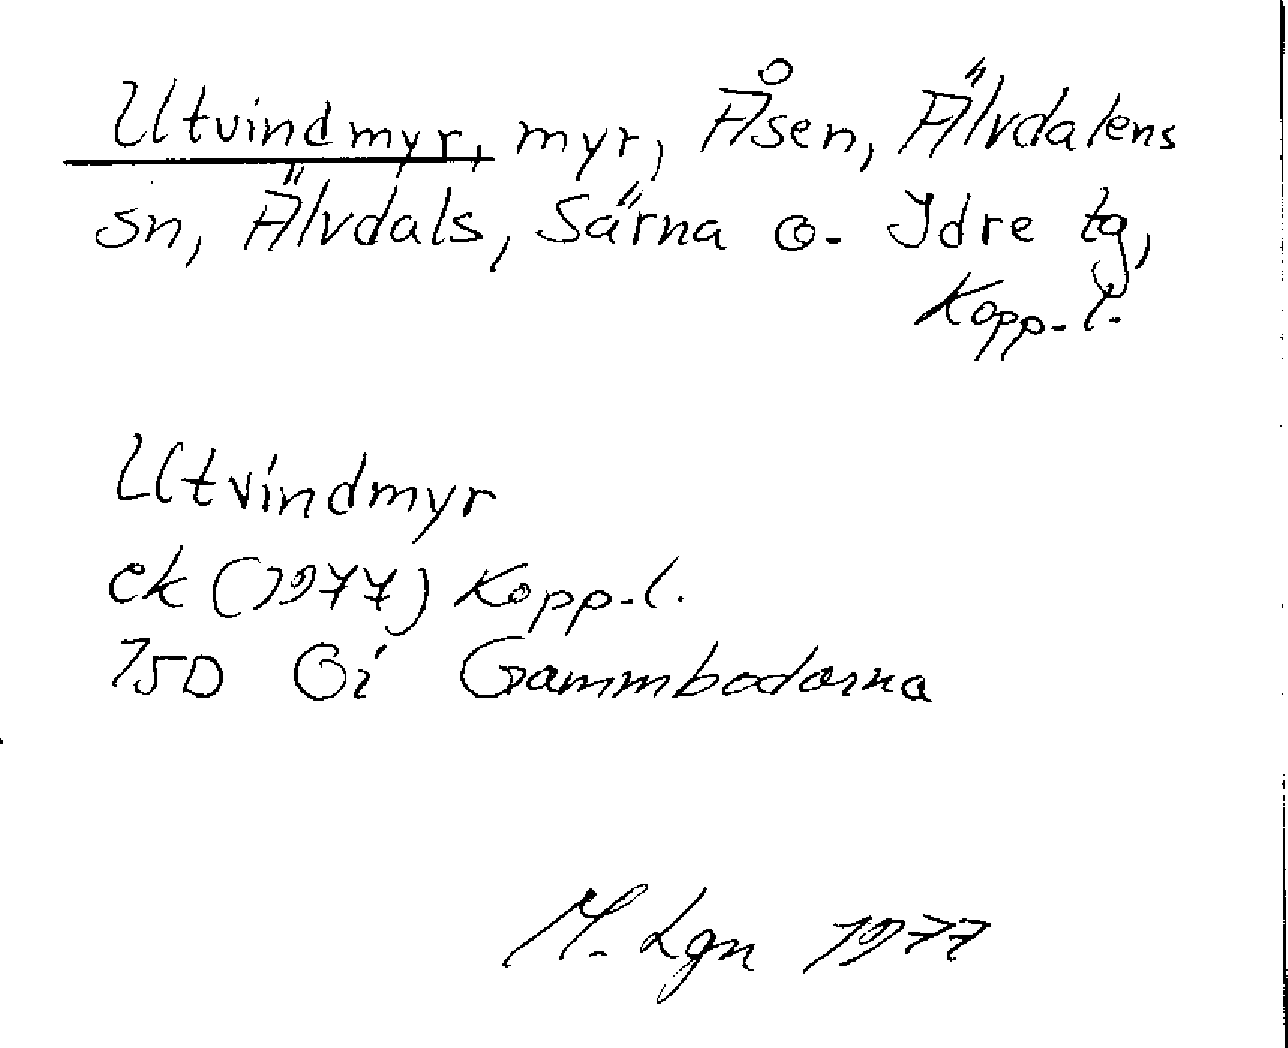 Utvindmyr, myr, Åsen, Älvdalens
sn, Älvdals, Särna o. Idre tg,
Kopp-l.
Utvindmyr
ek (1977) Kopp-l.
15D Gi Gammbodarna
M. Lgn 1977